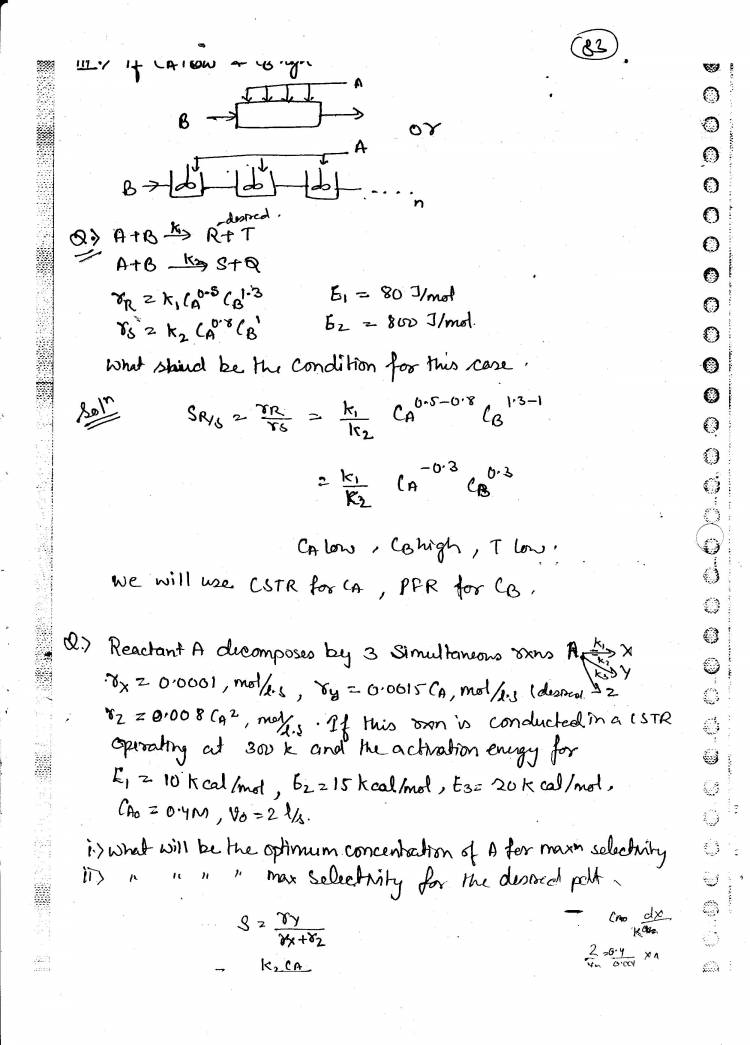 83
III. If CA low & CB high
A
B
or
A
B
n
Q.) A+B k1→ R+T desired.
A+B k2→ S+Q
rR = k1 CA^0.5 CB^1.3 E1 = 80 J/mol
rS = k2 CA^0.8 CB^1 E2 = 800 J/mol.
What shoud be the condition for this case.
Soln SR/S = rR/rS = k1/k2 CA^0.5-0.8 CB^1.3-1
= k1/k2 CA^-0.3 CB^0.3
CA low, CB high, T low.
We will use CSTR for CA, PFR for CB.
Q.) Reactant A decomposes by 3 Simultaneous rxns A k1→ X
k2 k3 Y
rx = 0.0001, mol/l.s, ry = 0.0015 CA, mol/l.s (desired Z
rz = 0.008 CA^2, mol/l.s. If this rxn is conducted in a CSTR
Operating at 300 K and the activation energy for
E1 = 10 kcal/mol, E2 = 15 kcal/mol, E3 = 20 K cal/mol,
CA0 = 0.4M, V0 = 2 l/s.
i.) What will be the optimum concentration of A for maxm selectivity
ii) " " " " max selectivity for the desired pdt.
S = ry/rx+rz
CA0 dx/K
k2 CA
2 = 0.4/0.001 x